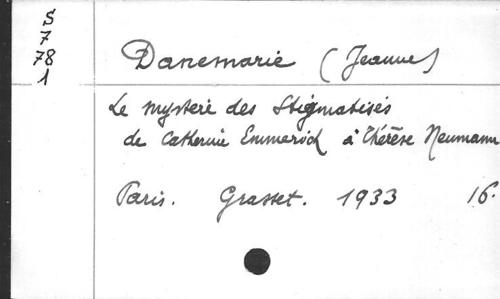 S
7
78
1
Danemarie (Jeanne)
Le mystère des Stigmatisés
de Catherine Emmerick à Thérèse Neumann
Paris. Grasset. 1933 16.